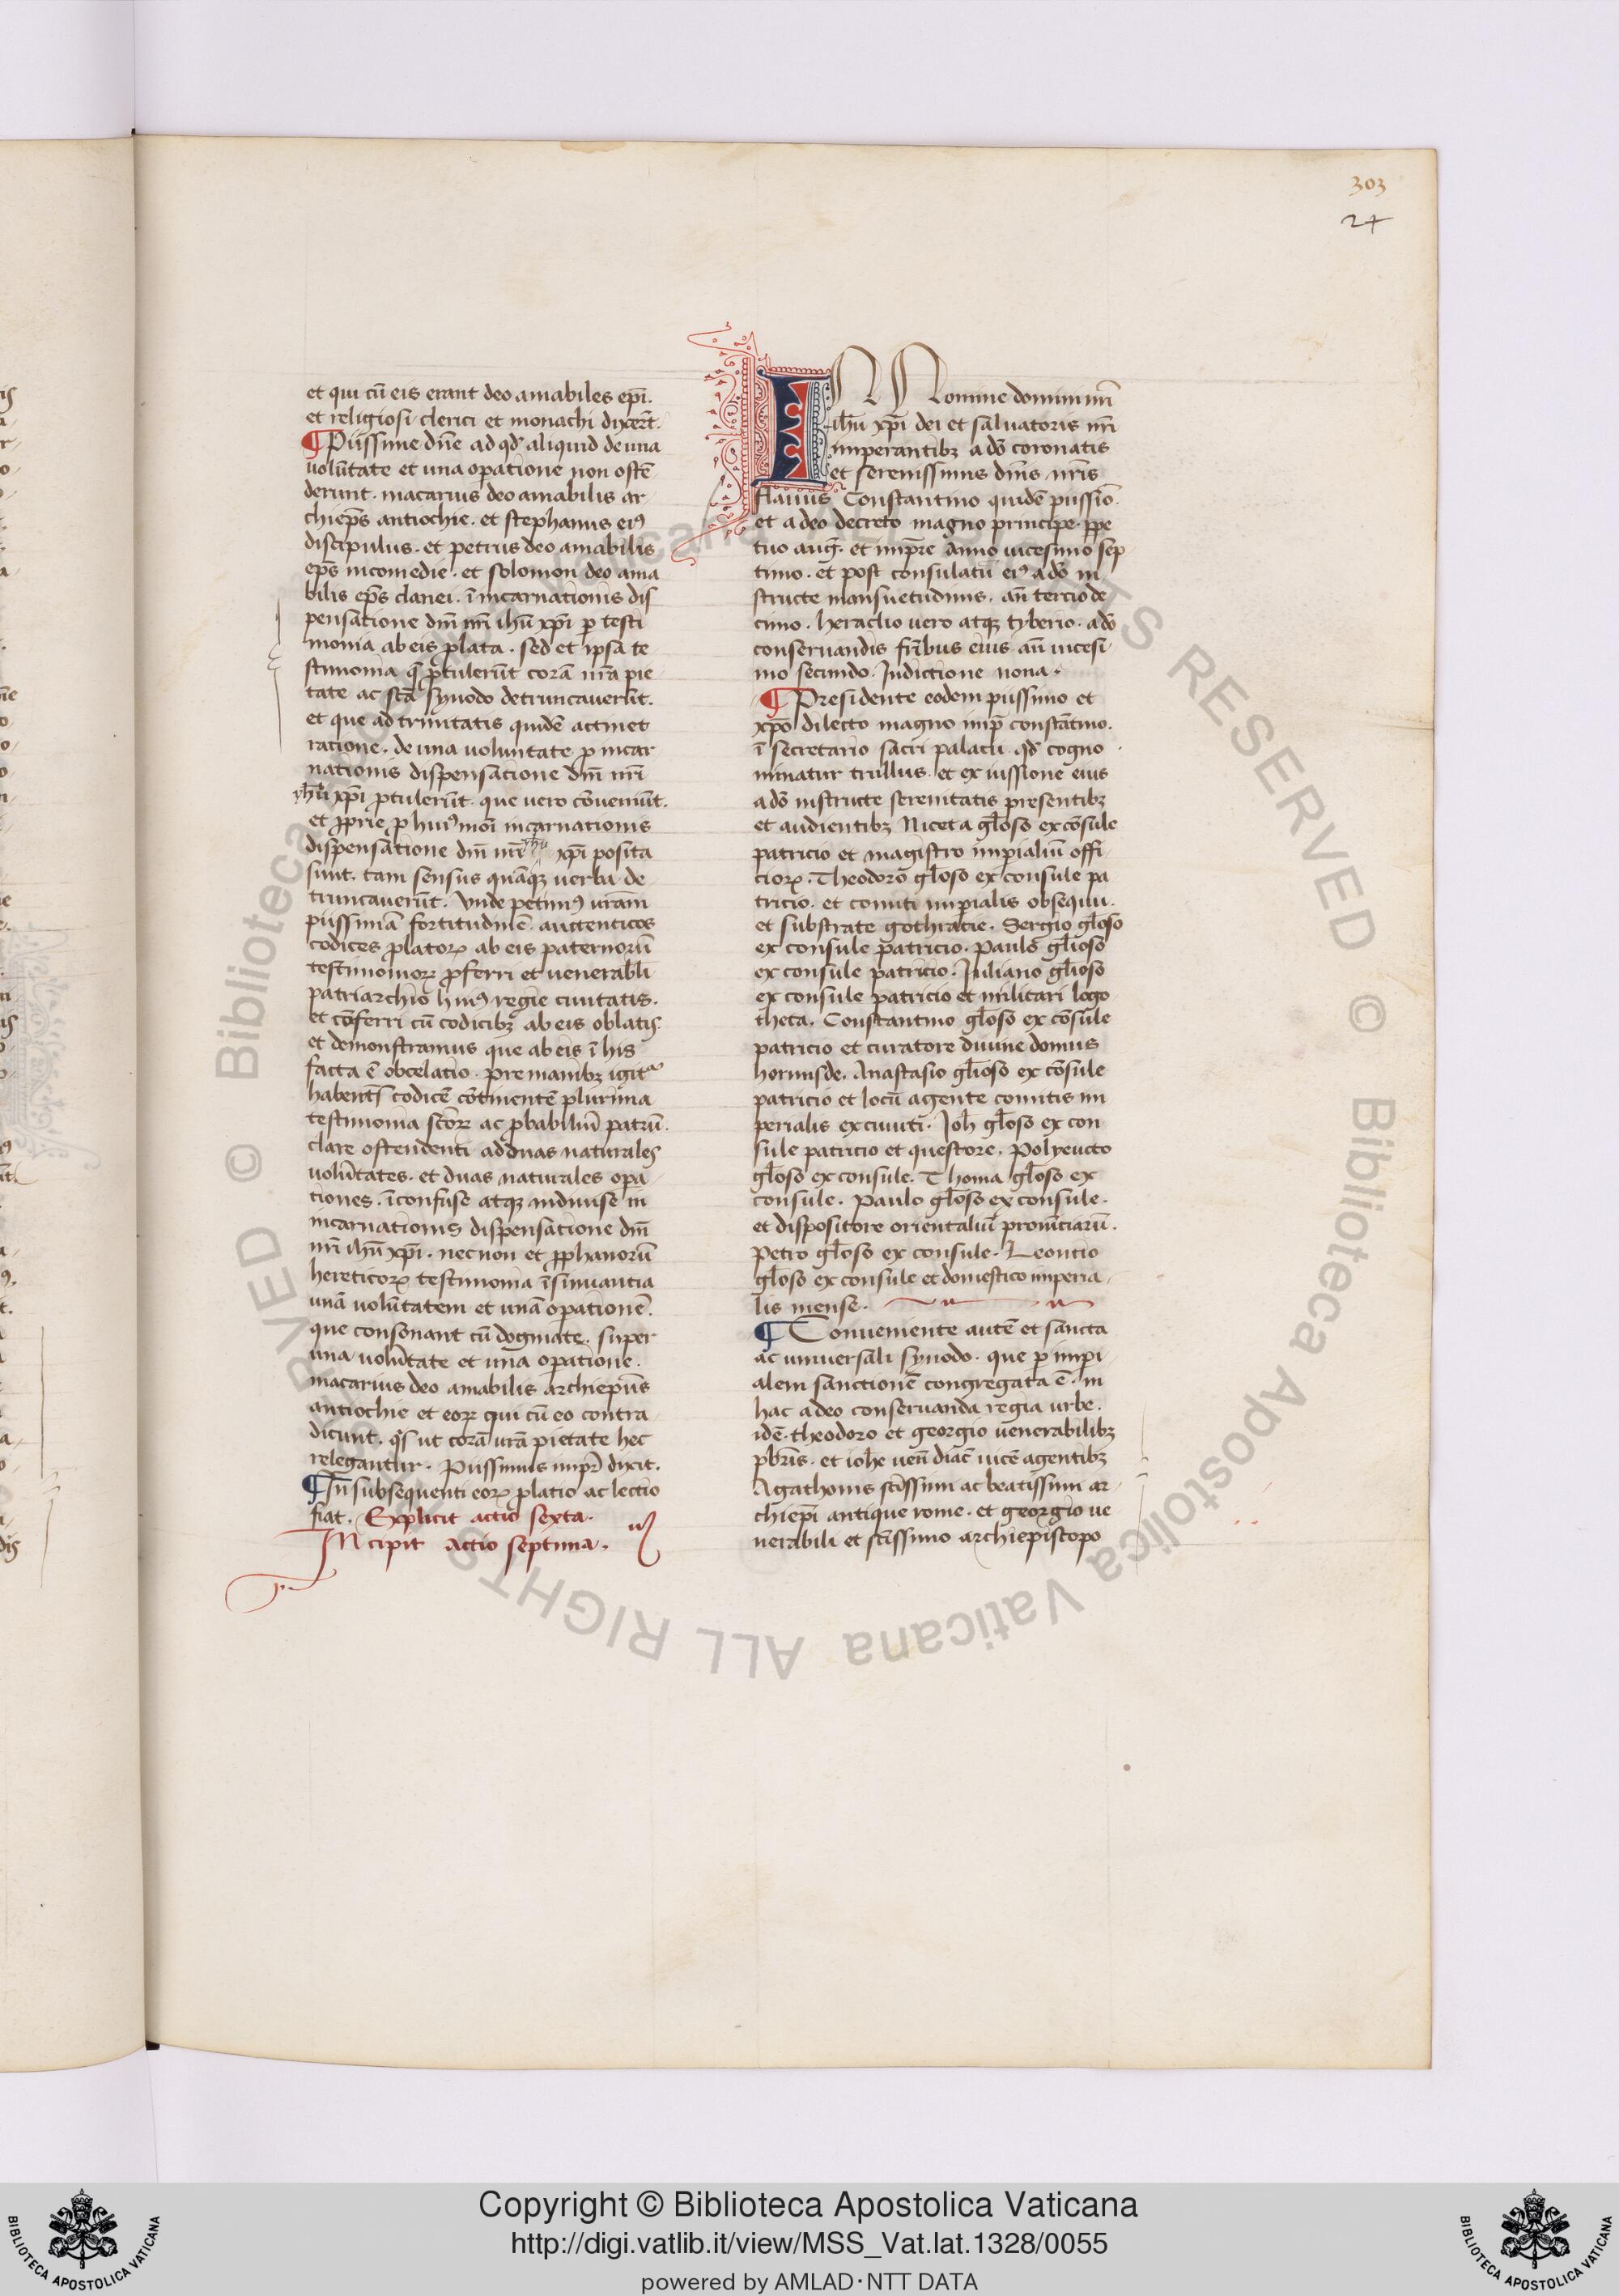 303
27
et qui cū eis erant deo amabiles ep̄i.
et religiosi clerici et monachi dixer̄t.
¶ Piissime dn̄e ad qd̓ aliquid de una
volūtate et una op̄atione non ostē
derunt. macarius deo amabilis ar
chiep̄s antiochie. et stephanus eiꝰ
discipulus. et petrus deo amabilis
ep̄s nicomedie. et solomon deo ama
bilis ep̄s clanei. ī incarnationis dis
pensatione dn̄i nr̄i ih̄u xp̄i ꝑ testi
monia ab eis ꝓlata. sed et ipsa te
stimonia q̄ ꝓtulerūt corā vr̄a pie
tate ac sc̄a synodo detruncaverūt.
et que ad trinitatis quidē attinet
ratione. de una voluntate ꝓ incar
nationis dispensatione dn̄i nr̄i
yh̄u xp̄i ꝓtulerūt. que vero cōveniūt.
et ꝓprie ꝓ huiꝰmōi incarnationis
dispensatione dn̄i nr̄i yh̄u xp̄i posita
sunt. tam sensus quāqꝫ verba de
truncaverūt. Unde petimꝰ vr̄am
piissimā fortitudinē. auctenticos
codices ꝓlatoꝝ ab eis paternorū
testimonioꝝ ꝓferri et venerabl̄i
patriarchio huiꝰ regie civitatis.
et cōferri cū codicibꝫ ab eis oblatis.
et demonstramus que ab eis ī his
facta ē obcelatio. pre manibꝫ igit᷑
habentes codicē cōtinentē plurima
testimonia sc̄oꝝ ac ꝓbabiliū patrū.
clare ostendenti ad duas naturales
volūtates. et duas naturales op̄a
tiones. īconfuse atqꝫ indivise in
incarnationis dispensatione dn̄i
nr̄i ih̄u xp̄i. necnon et ꝓphanorū
hereticoꝝ testimonia īsinuantia
unā volūtatem et unā op̄ationē.
que consonant cū dogmate. super
una volūtate et una op̄atione.
macarius deo amabilis archiep̄us
antiochie et eoꝝ qui cū eo contra
dicunt. qs̄ ut corā vr̄a pietate hec
relegantur. Piissimus imp̄r dixit.
¶ In subsequenti eoꝝ ꝓlatio ac lectio
fiat. Explicit actio sexta.
Incipit Actio septima.
IN Nomine domini nr̄i
ih̄u xp̄i dei et salvatoris nr̄i
imperantibꝫ a dō coronatis
et serenissimis dn̄is nr̄is
flavius Constantino quidē piissīo.
et a deo decreto magno principe. ꝑpe
tuo auḡ. et imp̄re anno vicesimo sep
timo. et post consulatū eiꝰ a dō in
structe mansuetudinis. an̄ tercio de
cimo. heraclio vero atqꝫ tyberio. a dō
conservandis fr̄ibus eius an̄ vicesi
mo secundo. Indictione nona.
¶ Presidente eodem piissimo et
xp̄o dilecto magno imp̄ constātino.
ī secretario sacri palacii qd̓ cogno
minatur trullus. et ex iussione eius
a dō instructe serenitatis presentibꝫ
et audientibꝫ Niceta gl̄oso ex cōsule
patricio et magistro imp̄ialiū offi
cioꝝ. Theodoro gl̄oso ex consule pa
tricio. et comiti imp̄ialis obsequii.
et substrate gothracie. Sergio gl̄oso
ex consule patricio. Paulo gl̄ioso
ex consule patricio. Iuliano gl̄ioso
ex consule patricio et militari logo
theta. Constantino gl̄oso ex cōsule
patricio et curatore divine domus
hormisde. Anastasio gl̄ioso ex cōsule
patricio et locū agente comitis im
perialis excuviti. Ioh̄ gl̄oso ex con
sule patricio et questore. Polyeucto
gl̄oso ex consule. Thoma gl̄oso ex
consule. Paulo gl̄oso ex consule.
et dispositore orientaliū provīciarū.
Petro gl̄oso ex consule. Leontio
gl̄oso ex consule et domestico imperia
lis mense.
¶ Conveniente autē et sancta
ac universali synodo. que ꝑ imp̄i
alem sanctionē congregata ē. in
hac a deo conservanda regia urbe.
idē. theodoro et georgio venerabilibꝫ
pbr̄is. et ioh̄e ven̄ diac̄ vicē agentibꝫ
Agathonis sc̄issimi ac beatissimi ar
chiep̄i antique rome. et georgio ve
nerabili et sc̄issimo archiepiscopo
© Biblioteca Apostolica Vaticana ALL RIGHTS RESERVED
Copyright © Biblioteca Apostolica Vaticana
http://digi.vatlib.it/view/MSS_Vat.lat.1328/0055
powered by AMLAD·NTT DATA
BIBLIOTECA APOSTOLICA VATICANA
BIBLIOTECA APOSTOLICA VATICANA